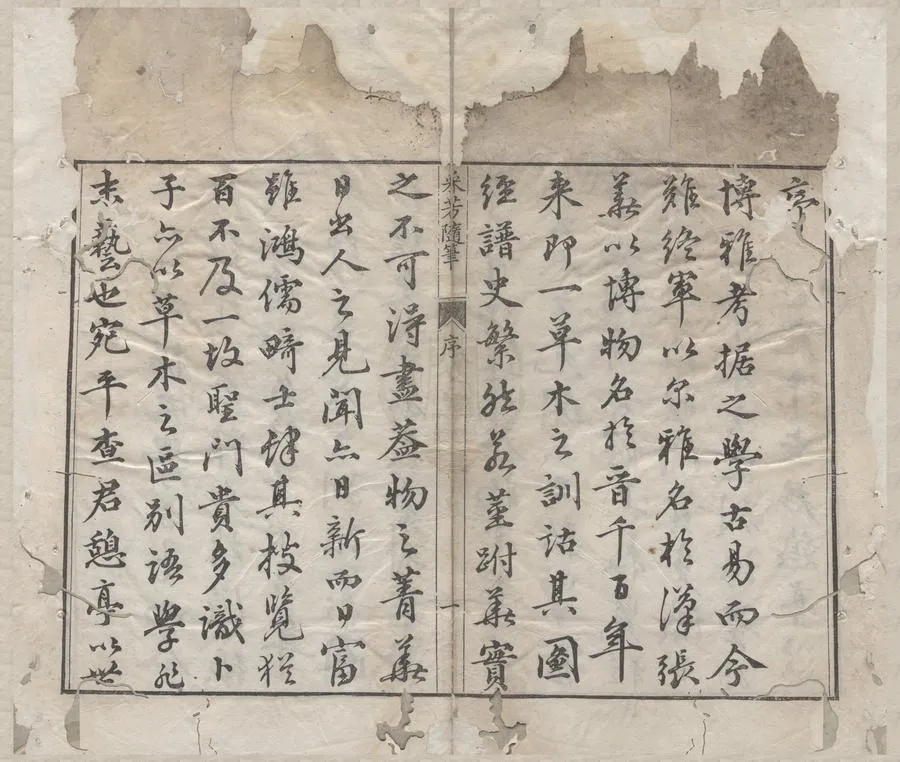 序
博雅考据之學古易而今
難終軍以尔雅名於漢張
華以博物名於晉千百年
来即一草木之訓詁其圖
經譜史繁然若莖跗華實
采芳隨筆 序 一
之不可得盡葢物之菁華
日出人之見聞亦日新而日富
雖鴻儒畸士肆其披覽猶
百不及一故聖門貴多識卜
子亦以草木之區别語學非
末藝也宛平查君憩亭以世